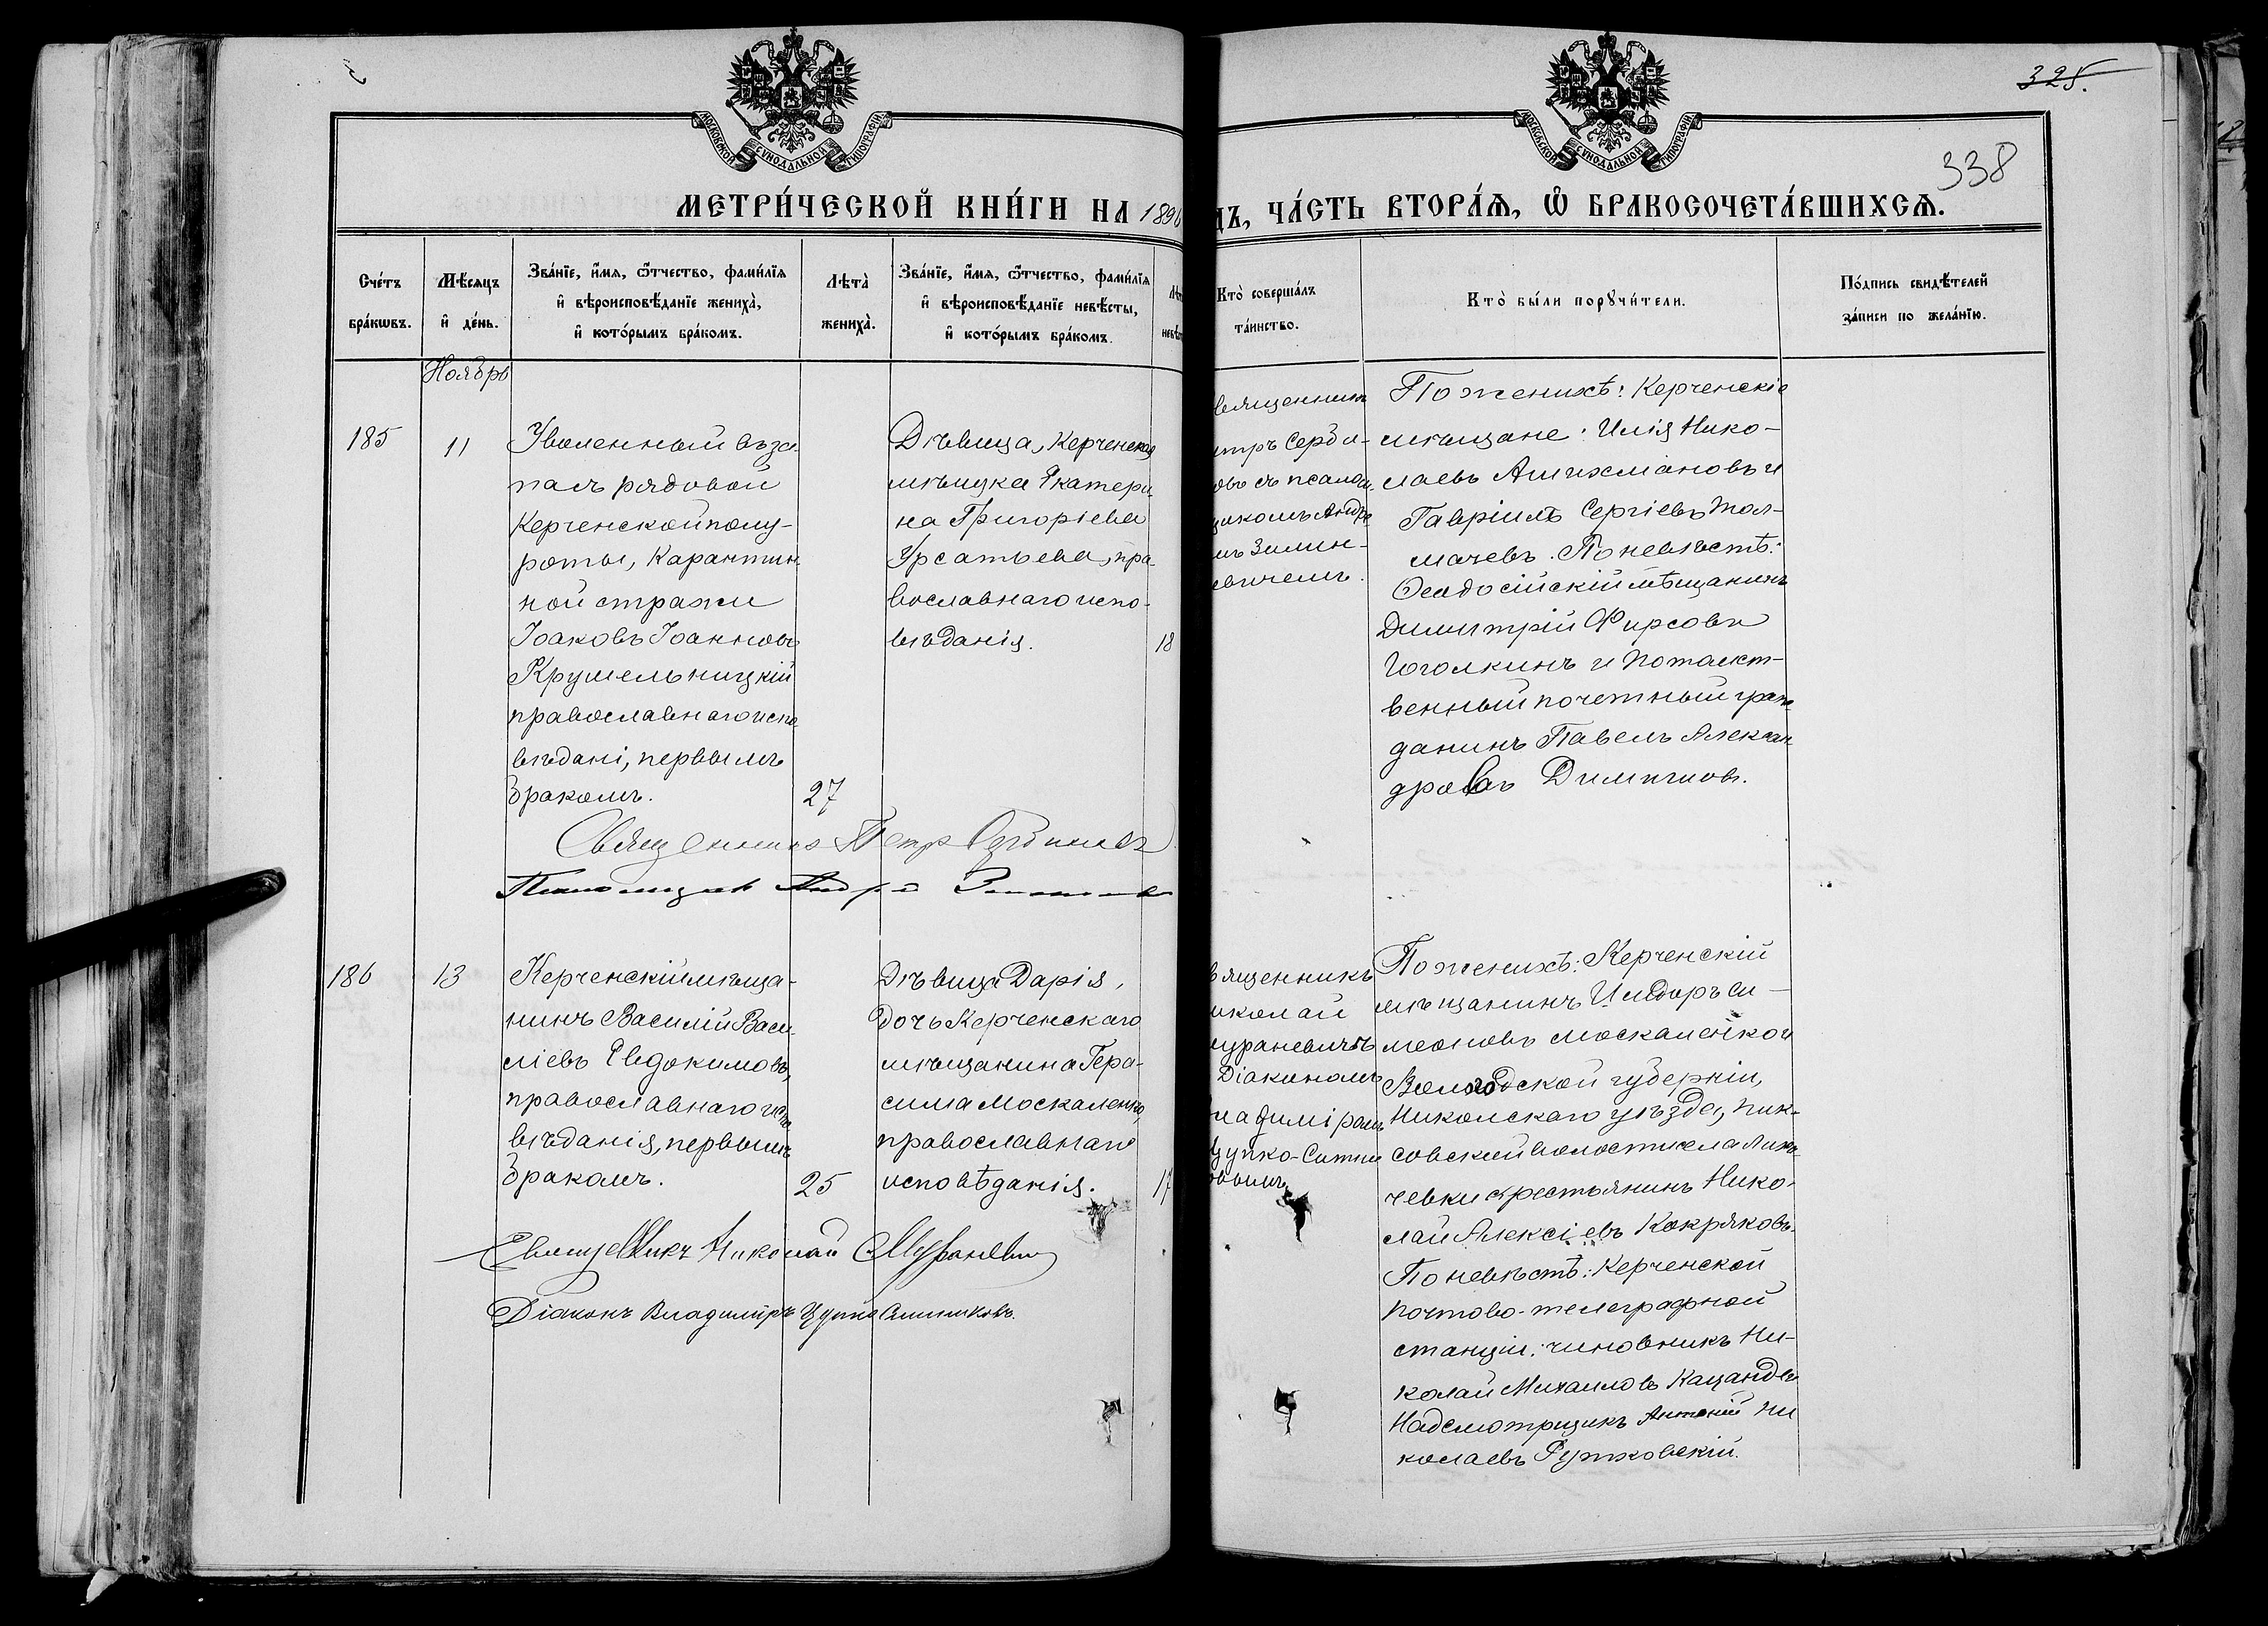 325.
338
МОСКОВСКОЙ СѴНОДАЛЬНОЙ ТИПОГРАФІИ
МОСКОВСКОЙ СѴНОДАЛЬНОЙ ТИПОГРАФІИ
МЕТРИ́ЧЕСКОЙ КНИ́ГИ НА 1896
ДЪ, ЧА́СТЬ ВТОРА́Ѧ, Ѡ҆ БРАКОСОЧЕТА́ВШИХСѦ.
Сче́тъ
бра́кѡвъ.
Мѣ́сяцъ
и҆ де́нь.
Зва́нїе, и҆́мя, ѻ҆́тчество, фами́лїя
и҆ вѣроисповѣ́данїе жениха̀,
и҆ кото́рымъ бра́комъ.
Лѣта̀
жениха̀.
Зва́нїе, и҆́мя, ѻ҆́тчество, фами́лїя
и҆ вѣроисповѣ́данїе невѣ́сты,
и҆ кото́рымъ бра́комъ.
Кто̀ соверша́лъ
та́инство.
Кто̀ бы́ли порꙋчи́тели.
По́дпись свидѣ́телей
за́писи по жела́нїю.
Ноябрь
185
11
Уволенный въ за-
пасъ рядовой
Керченской полу-
роты, Карантин
ной стражи
Іоаковъ Іоанновъ
Крушельницкій
православнаго испо
вѣдані, первымъ
бракомъ.
27
Дѣвица, Керченская
мѣщанка Екатери
на Григоріева
Урсатьева, пра-
вославнаго испо-
вѣданія.
18
вященникъ
етръ Серби-
овъ съ псалом-
щикомъ Андре
мъ Зилин-
евичемъ.
По женихѣ: Керченскіе
мѣщане: Илія Нико-
лаевъ Ашихмановъ и
Гавріилъ Сергіевъ Тол-
мачевъ. По невѣстѣ:
Ѳеодосійскій мѣщанинъ
Димитрій Фирсовъ
Гоголкинъ и Потомст-
венный почетный граж
данинъ Павелъ Алексан
дровъ
Священникъ Петръ
Псаломщикъ Андрей
186
13
Керченскій мѣща-
нинъ Василій Васи-
ліевъ Евдокимовъ,
православнаго испо
вѣданія, первымъ
бракомъ.
25
Дѣвица Дарія,
дочь Керченскаго
мѣщанина Гера-
сима Москаленко,
православнаго
исповѣданія.
17
вященникъ
иколай
ураневичъ
Діакономъ
ладиміромъ
Цупко-Ситни
овымъ
По женихѣ: Керченскій
мѣщанинъ Исидоръ Си-
меоновъ Москаленко и
Вологодской губерніи,
Никольскаго уѣзда,
совской волости села
чевки крестьянинъ Нико-
лай Алексіевъ Кокряковъ.
По невѣстѣ: Керченской
почтово-телеграфной
станціи: чиновникъ Ни-
колай Михаиловъ
Надсмотрщикъ Антоній Ни
колаевъ Рутковскій.
Священникъ Николай Мураневич
Діаконъ Владиміръ Цупко Ситниковъ.